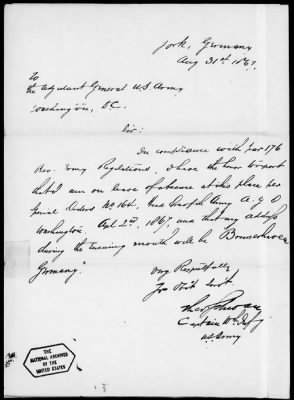 York, Germany
Aug 31st 1867.
To
the Adjutant General U.S. Army
Washington, D.C.
Sir:
In compliance with par 176
Rev. Army Regulations, I have the honor to report
that I am on leave of absence at this place per
Special Orders No 164, Army A.G.O
Washington, 2nd, 1867, and that my address
during the ensuing month will be "Bremerhaven
Germany"
Very Respectfully
Your Obdt Servt
Theo Schwan
Captain Infy
U.S. Army
THE
NATIONAL ARCHIVES
OF THE
UNITED STATES